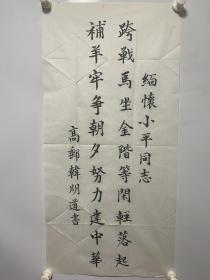 緬懷小平同志
跨戰馬坐金階等閑輕落起
補羊牢争朝夕努力建中華
高郵韓明道書